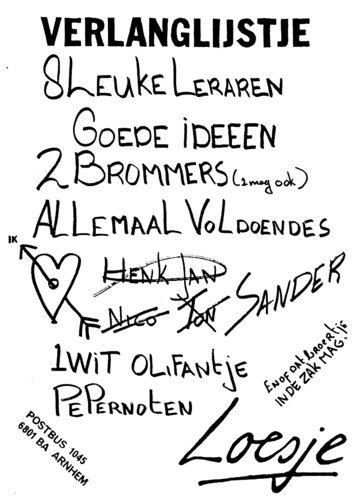 VERLANGLIJSTJE
8 LEUKE LERAREN
GOEDE iDEEEN
2 BROMMERS (1 mag ook)
ALLEMAAL VOLDOENDES
IK
HENK JAN
NICO TON SANDER
1 WiT OLiFANTje
PEPERNOTEN
EN OF DAT BROERTJE
IN DE ZAK MAG!
POSTBUS 1045
6801 BA ARNHEM
Loesje